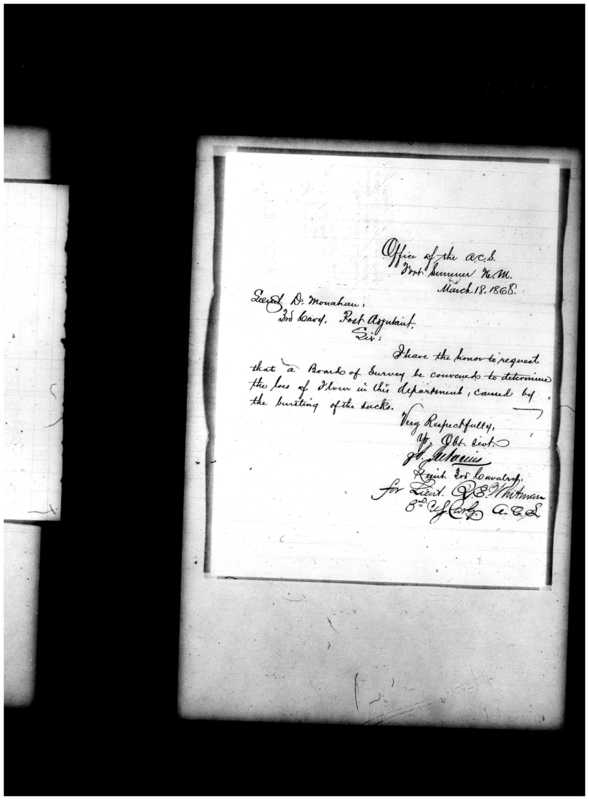 Office of the A.C.S.
Fort Sumner N.M.
March 18. 1868.
Lieut D. Monahan,
3rd Cavy. Post Adjutant.
Sir:
I have the honor to request
that a Board of Survey be convened to determine
the loss of Flour in this department, caused by
the bursting of the sacks.
Very Respectfully,
Yr Obt. Servt.
3rd Cavalry.
for Lieut. R. E. Whitman
3rd US Cavly A.C.S.